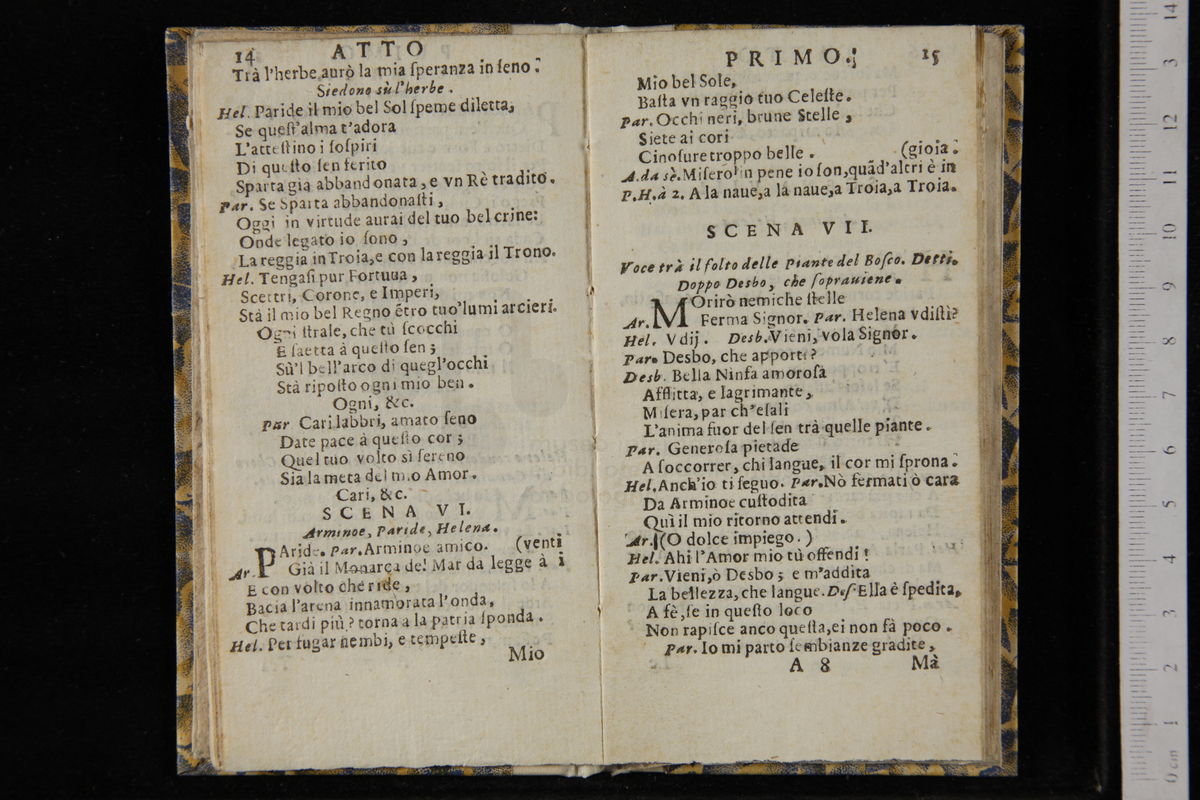 14 ATTO
Trà l'herbe aurò la mia ſperanza in ſeno.
Siedono sù l'herbe.
Hel. Paride il mio bel Sol ſpeme diletta,
Se queſt'alma t'adora
L'atteſtino i ſoſpiri
Di queſto ſen ferito
Sparta già abbandonata, e vn Rè tradito.
Par. Se Sparta abbandonaſti,
Oggi in virtude aurai del tuo bel crine:
Onde legato io ſono,
La reggia in Troia, e con la reggia il Trono.
Hel. Tengaſi pur Fortuua,
Scettri, Corone, e Imperi,
Stà il mio bel Regno ẽtro tuo'lumi arcieri.
Ogni ſtrale, che tù ſcocchi
E ſaetta à queſto ſen;
Sù'l bell'arco di quegl'occhi
Stà ripoſto ogni mio ben.
Ogni, &c.
Par Cari labbri, amato ſeno
Date pace à queſto cor;
Quel tuo volto sì ſereno
Sia la meta del mio Amor.
Cari, &c.
SCENA VI.
Arminoe, Paride, Helena.
Ar. PAride. Par. Arminoe amico. (venti
Già il Monarca del Mar da legge à i
E con volto che ride,
Bacia l'arena innamorata l'onda,
Che tardi più? torna a la patria ſponda.
Hel. Per fugar nembi, e tempeſte,
Mio
PRIMO. 15
Mio bel Sole,
Baſta vn raggio tuo Celeſte.
Par. Occhi neri, brune Stelle,
Siete ai cori
Cinoſure troppo belle. (gioia.
A. da sè. Miſero! in pene io ſon, quãd'altri è in
P.H. à 2. A la naue, a la naue, a Troia, a Troia.
SCENA VII.
Voce trà il folto delle Piante del Boſco. Detti.
Doppo Desbo, che ſoprauiene.
MOrirò nemiche ſtelle
Ar. Ferma Signor. Par. Helena vdiſti?
Hel. Vdij. Desb. Vieni, vola Signor.
Par. Desbo, che apporti?
Desb. Bella Ninfa amoroſa
Afflitta, e lagrimante,
Miſera, par ch'eſali
L'anima fuor del ſen trà quelle piante.
Par. Generoſa pietade
A ſoccorrer, chi langue, il cor mi ſprona.
Hel. Anch'io ti ſeguo. Par. Nò fermati ò cara
Da Arminoe cuſtodita
Quì il mio ritorno attendi.
Ar. (O dolce impiego.)
Hel. Ahi l'Amor mio tù offendi!
Par. Vieni, ò Desbo; e m'addita
La bellezza, che langue. Deſ. Ella è ſpedita,
A fè, ſe in queſto loco
Non rapiſce anco queſta, ei non fà poco.
Par. Io mi parto ſembianze gradite,
A 8 Mà
0 cm 1 2 3 4 5 6 7 8 9 10 11 12 3 14